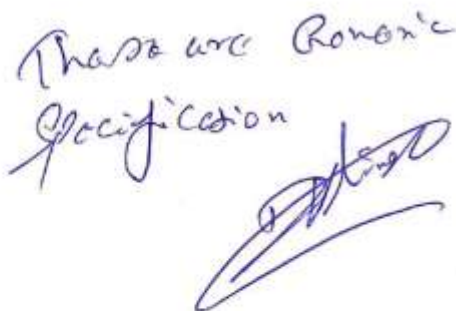 These are Generic
Specification